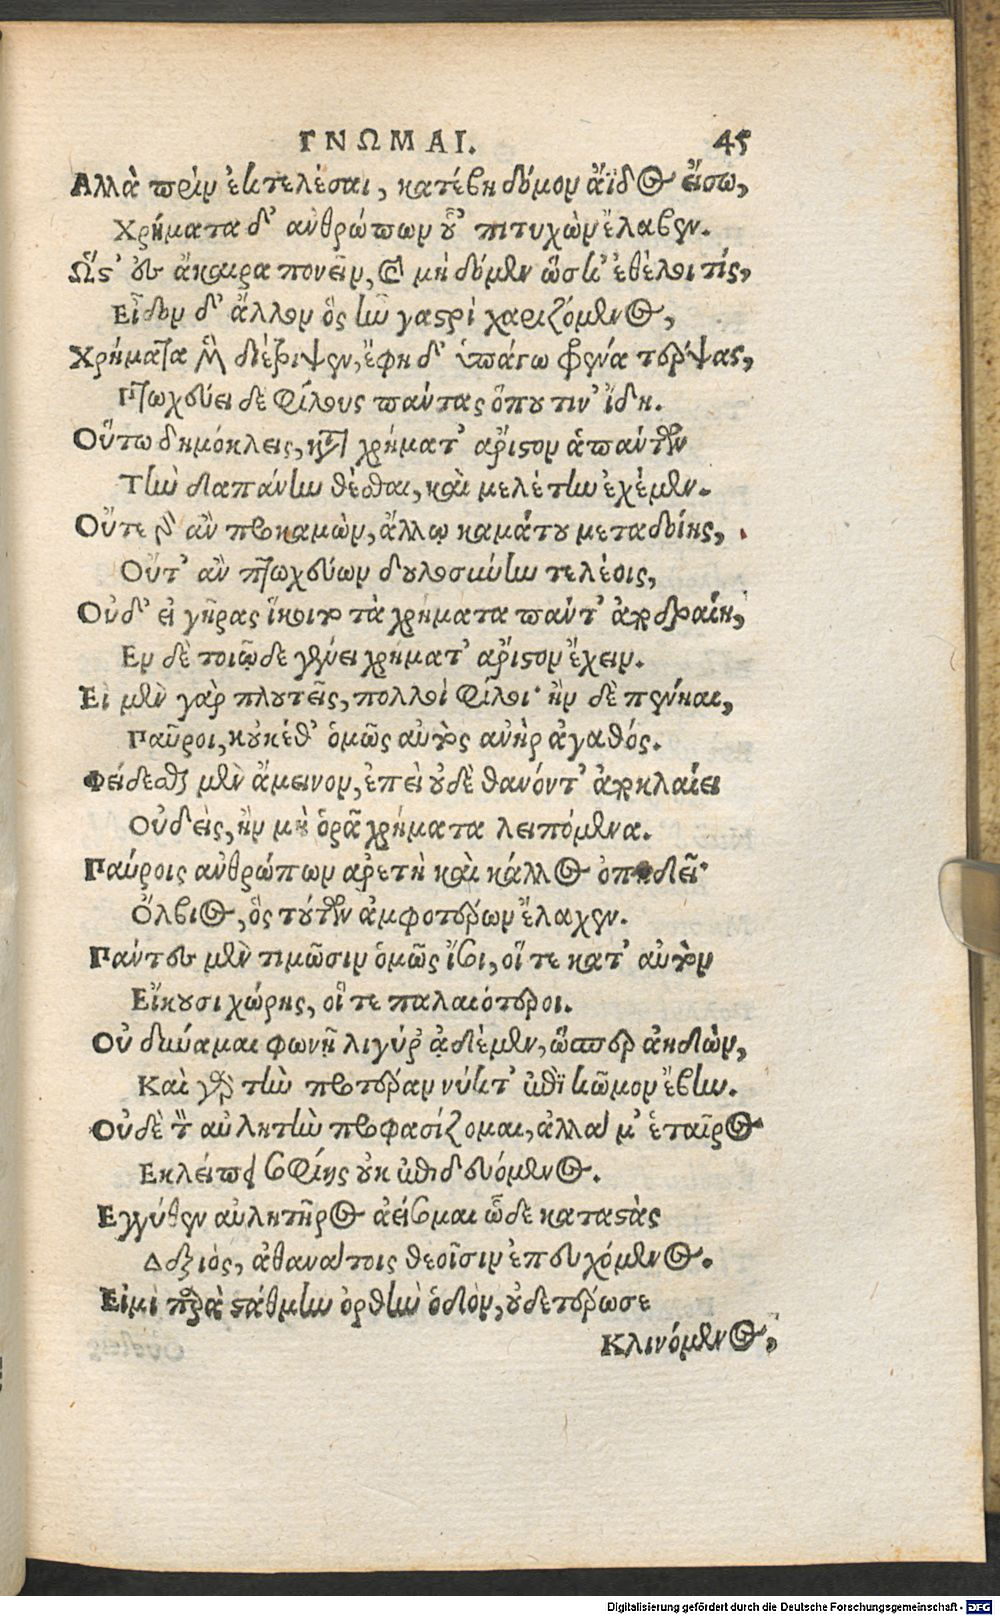 ΓΝΩΜΑΙ. 45
Αλλὰ πρὶν ἐκτελέσαι, κατέβη δόμον ἄϊδος εἴσω,
Χρήματα δ' ἀνθρώπων οὗ πιτυχὼν ἔλαβεν.
Ὥς' οὖν ἄκαιρα πονεῖν, καὶ μὴ δόμεν ὥς κ' ἐθέλοι τίς,
Εἶδον δ' ἄλλον ὃς ἣν γαστρὶ χαριζόμενος,
Χρήματα μὲν διέτριψεν, ἔφη δ' ὑπάγω φρένα τέρψας,
Πτωχεύει δὲ φίλους πάντας ὅπου τιν' ἴδῃ.
Οὕτω δημόκλεις, κατὰ χρήματ' ἄριστον ἁπάντων
Τὴν δαπάνην θέσθαι, καὶ μελέτην ἐχέμεν.
Οὔτε γὰρ ἂν προκαμὼν, ἄλλῳ καμάτου μεταδοίης,
Οὔτ' ἂν πτωχεύων δουλοσύνην τελέοις,
Οὐδ' εἰ γῆρας ἵκοιτο τὰ χρήματα πάντ' ἀποδραίη,
Εν δὲ τοιῷδε γένει χρήματ' ἄριστον ἔχειν.
Εἰ μὲν γὰρ πλουτεῖς, πολλοὶ φίλοι· ἢν δὲ πένηαι,
Παῦροι, κοὐκέθ' ὁμῶς αὐτὸς ἀνὴρ ἀγαθός.
Φείδεσθαι μὲν ἄμεινον, ἐπεὶ οὐδὲ θανόντ' ἀποκλαίει
Οὐδεὶς, ἢν μὴ ὁρᾷ χρήματα λειπόμενα.
Παύροις ἀνθρώπων ἀρετὴ καὶ κάλλος ὀπηδεῖ·
Ὄλβιος, ὃς τούτων ἀμφοτέρων ἔλαχεν.
Πάντες μὲν τιμῶσιν ὁμῶς ἴσοι, οἵ τε κατ' αὐτὸν
Εἴκουσι χώρης, οἵ τε παλαιότεροι.
Οὐ δύναμαι φωνῇ λιγύρ' ᾀδέμεν, ὥσπερ ἀηδὼν,
Καὶ γὰρ τὴν προτέραν νύκτ' ἐπὶ κῶμον ἔβην.
Οὐδὲ τὸν αὐλητὴν προφασίζομαι, ἀλλά μ' ἑταῖρος
Εκλείπει σοφίης οὐκ ἐπιδευόμενος.
Εγγύθεν αὐλητῆρος ἀείσομαι ὧδε καταστὰς
Δεξιὸς, ἀθανάτοις θεοῖσιν ἐπευχόμενος.
Εἰμὶ παρὰ στάθμην ὀρθὴν ὁδὸν, οὐδετέρωσε
Κλινόμενος,
Digitalisierung gefördert durch die Deutsche Forschungsgemeinschaft - DFG